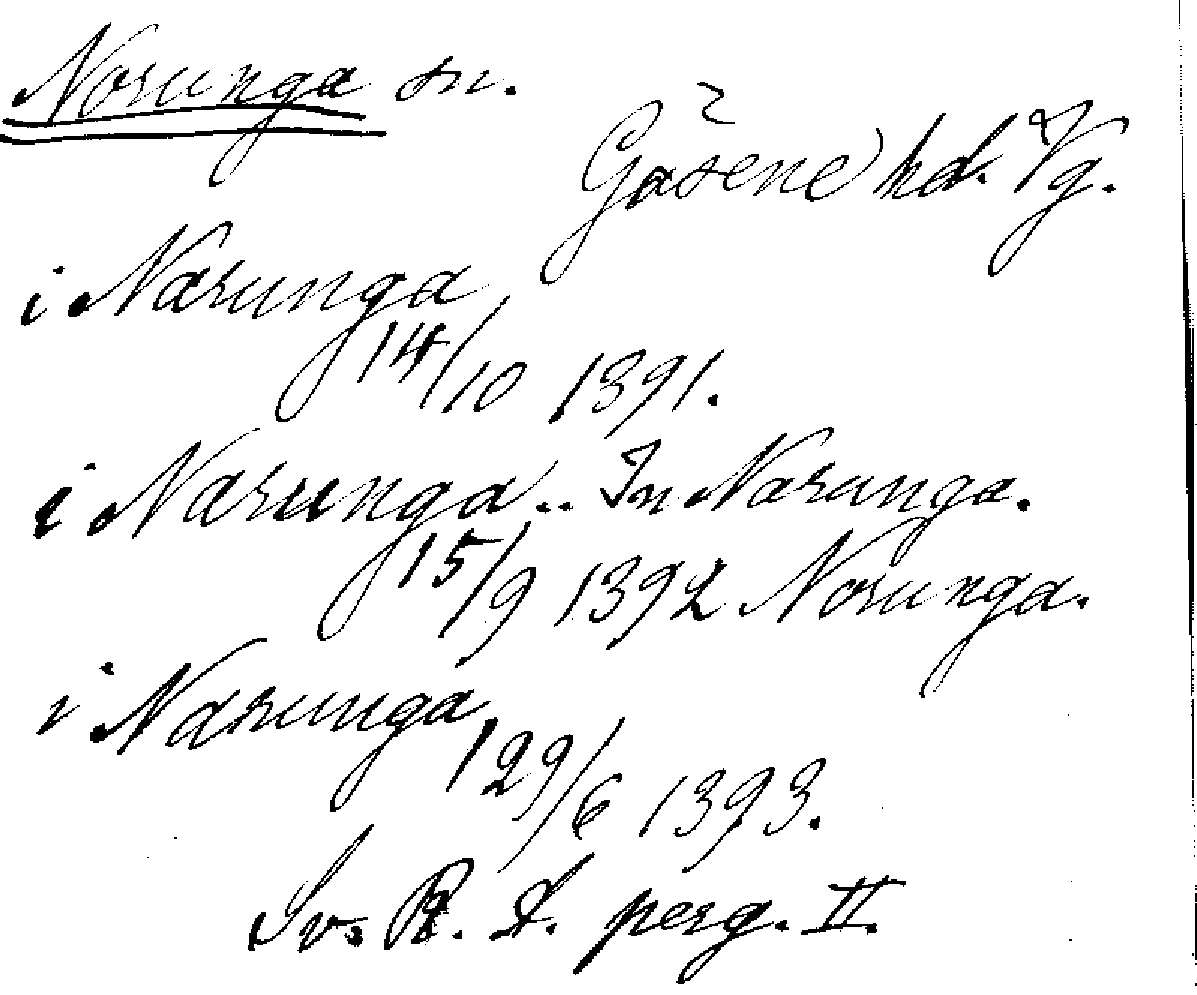 Norunga sn.
Gäsene hd. Vg.
i Narunga,
14/10 1391.
i Narunga.. In Narunga.
15/9 1392 Norunga.
i Narunga,
29/6 1393.
Sv. R. A. perg. II.